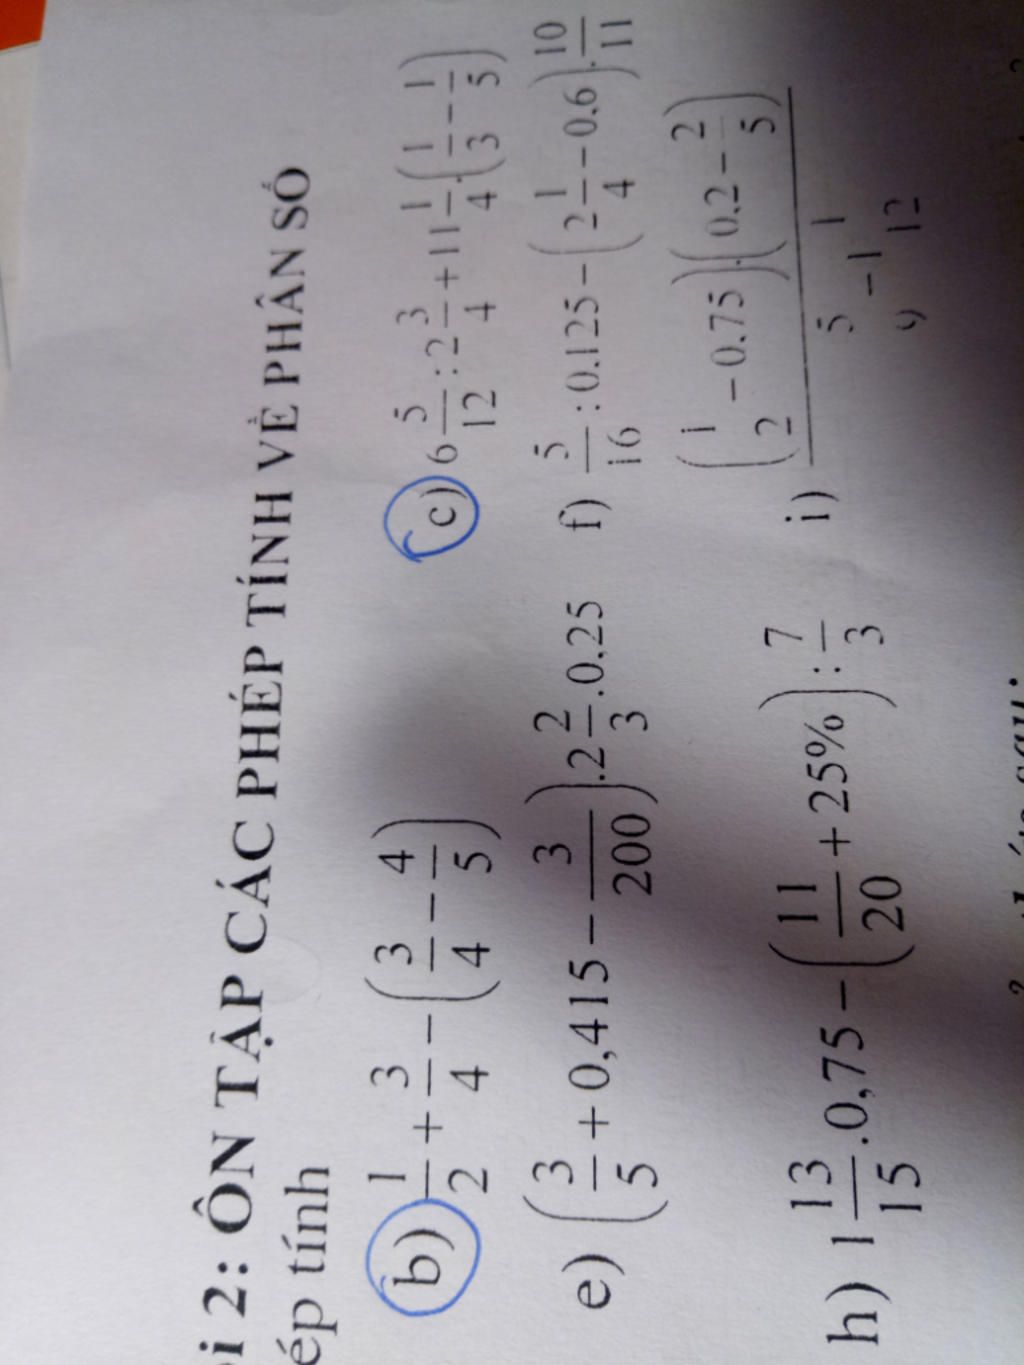 i 2: ÔN TẬP CÁC PHÉP TÍNH VỀ PHÂN SỐ
ép tính
b) 1/2 + 3/4 − (3/4 − 4/5) c) 6 5/12 : 2 3/4 + 11 1/4 . (1/3 − 1/5)
e) (3/5 + 0,415 − 3/200) . 2 2/3 . 0.25 f) 5/16 : 0.125 − (2 1/4 − 0.6) . 10/11
h) 1 13/15 . 0,75 − (11/20 + 25%) : 7/3 i) (1/2 − 0.75) . (0.2 − 2/5) / (5/9 − 1 1/12)